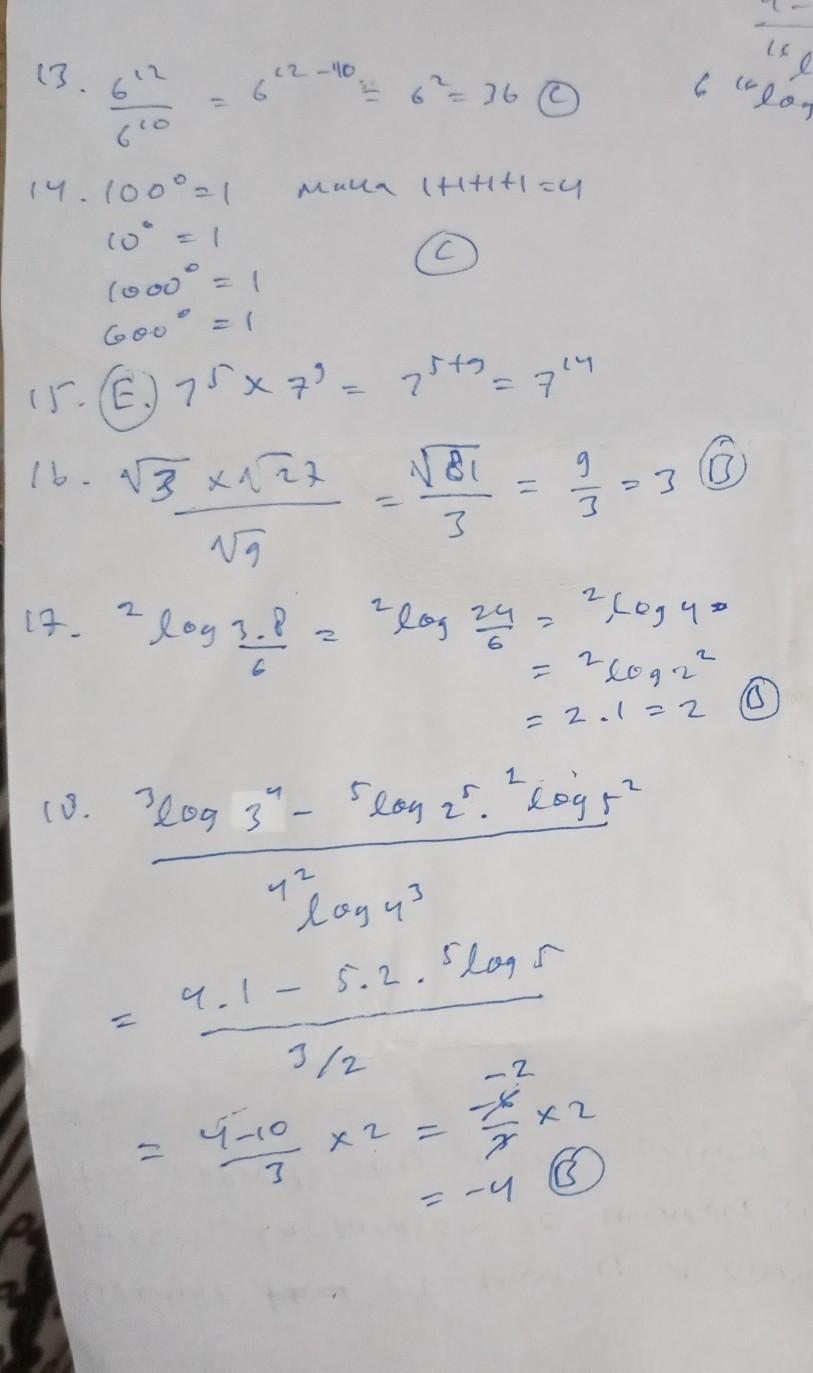 13. 6^12 / 6^10 = 6^(12-10) = 6^2 = 36 (C)
14. 100° = 1 maka 1+1+1+1 = 4
10° = 1 (C)
1000° = 1
600° = 1
15. (E.) 7^5 x 7^9 = 7^(5+9) = 7^14
16. √3 x √27 / √9 = √81 / 3 = 9/3 = 3 (B)
17. ²log 3.8/6 = ²log 24/6 = ²log 4 =
= ²log 2²
= 2.1 = 2
18. ³log 3^4 - ⁵log 2^5 . ²log 5²
4² log 4³
= 4.1 - 5.2 . ⁵log 5
3/2
= 4-10 / 3 x 2 = -6/3 x 2
-2
= -4 (B)
6 ¹⁶log